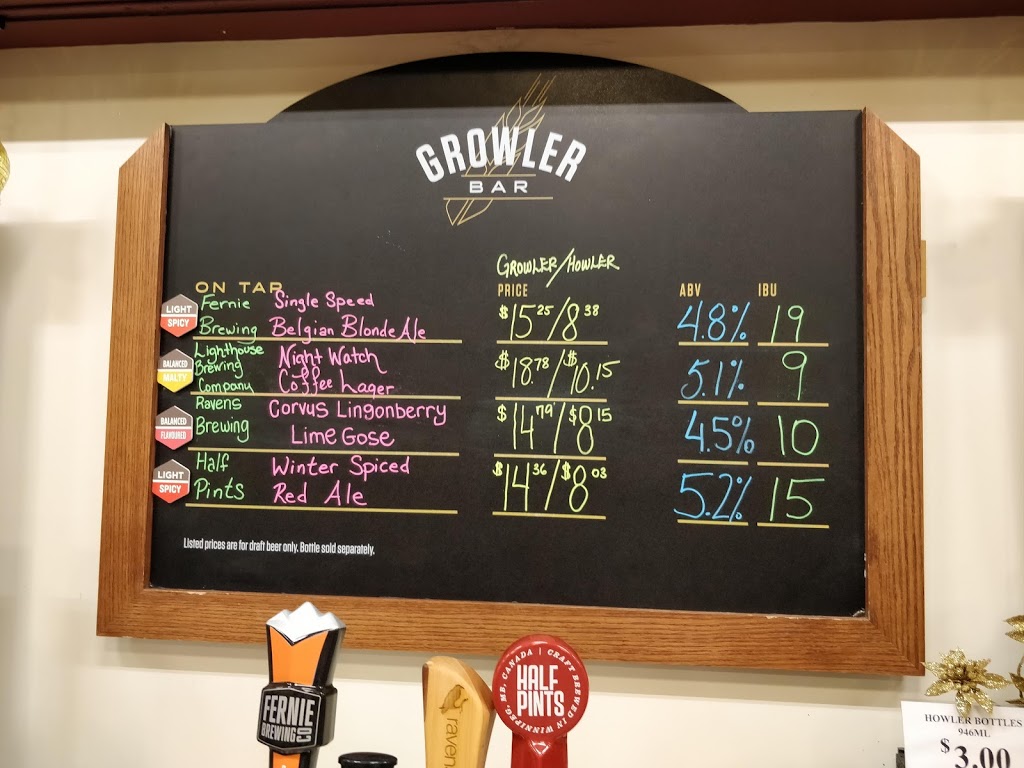 GROWLER
BAR
GROWLER/HOWLER
ON TAP
PRICE
ABV
IBU
LIGHT
SPICY
Fernie
Brewing
Single Speed
Belgian Blonde Ale
$15.25/8.38
4.8%
19
BALANCED
MALTY
Lighthouse
Brewing
Company
Night Watch
Coffee Lager
$18.78/$10.15
5.1%
9
BALANCED
FLAVOURED
Ravens
Brewing
Corvus Lingonberry
Lime Gose
$14.79/$8.15
4.5%
10
LIGHT
SPICY
Half
Pints
Winter Spiced
Red Ale
$14.36/$8.03
5.2%
15
Listed prices are for draft beer only. Bottle sold separately.
FERNIE
BREWING CO
raven
WINNIPEG, MB, CANADA | CRAFT BREWED IN
HALF
PINTS
HOWLER BOTTLES
946ML
$3.00